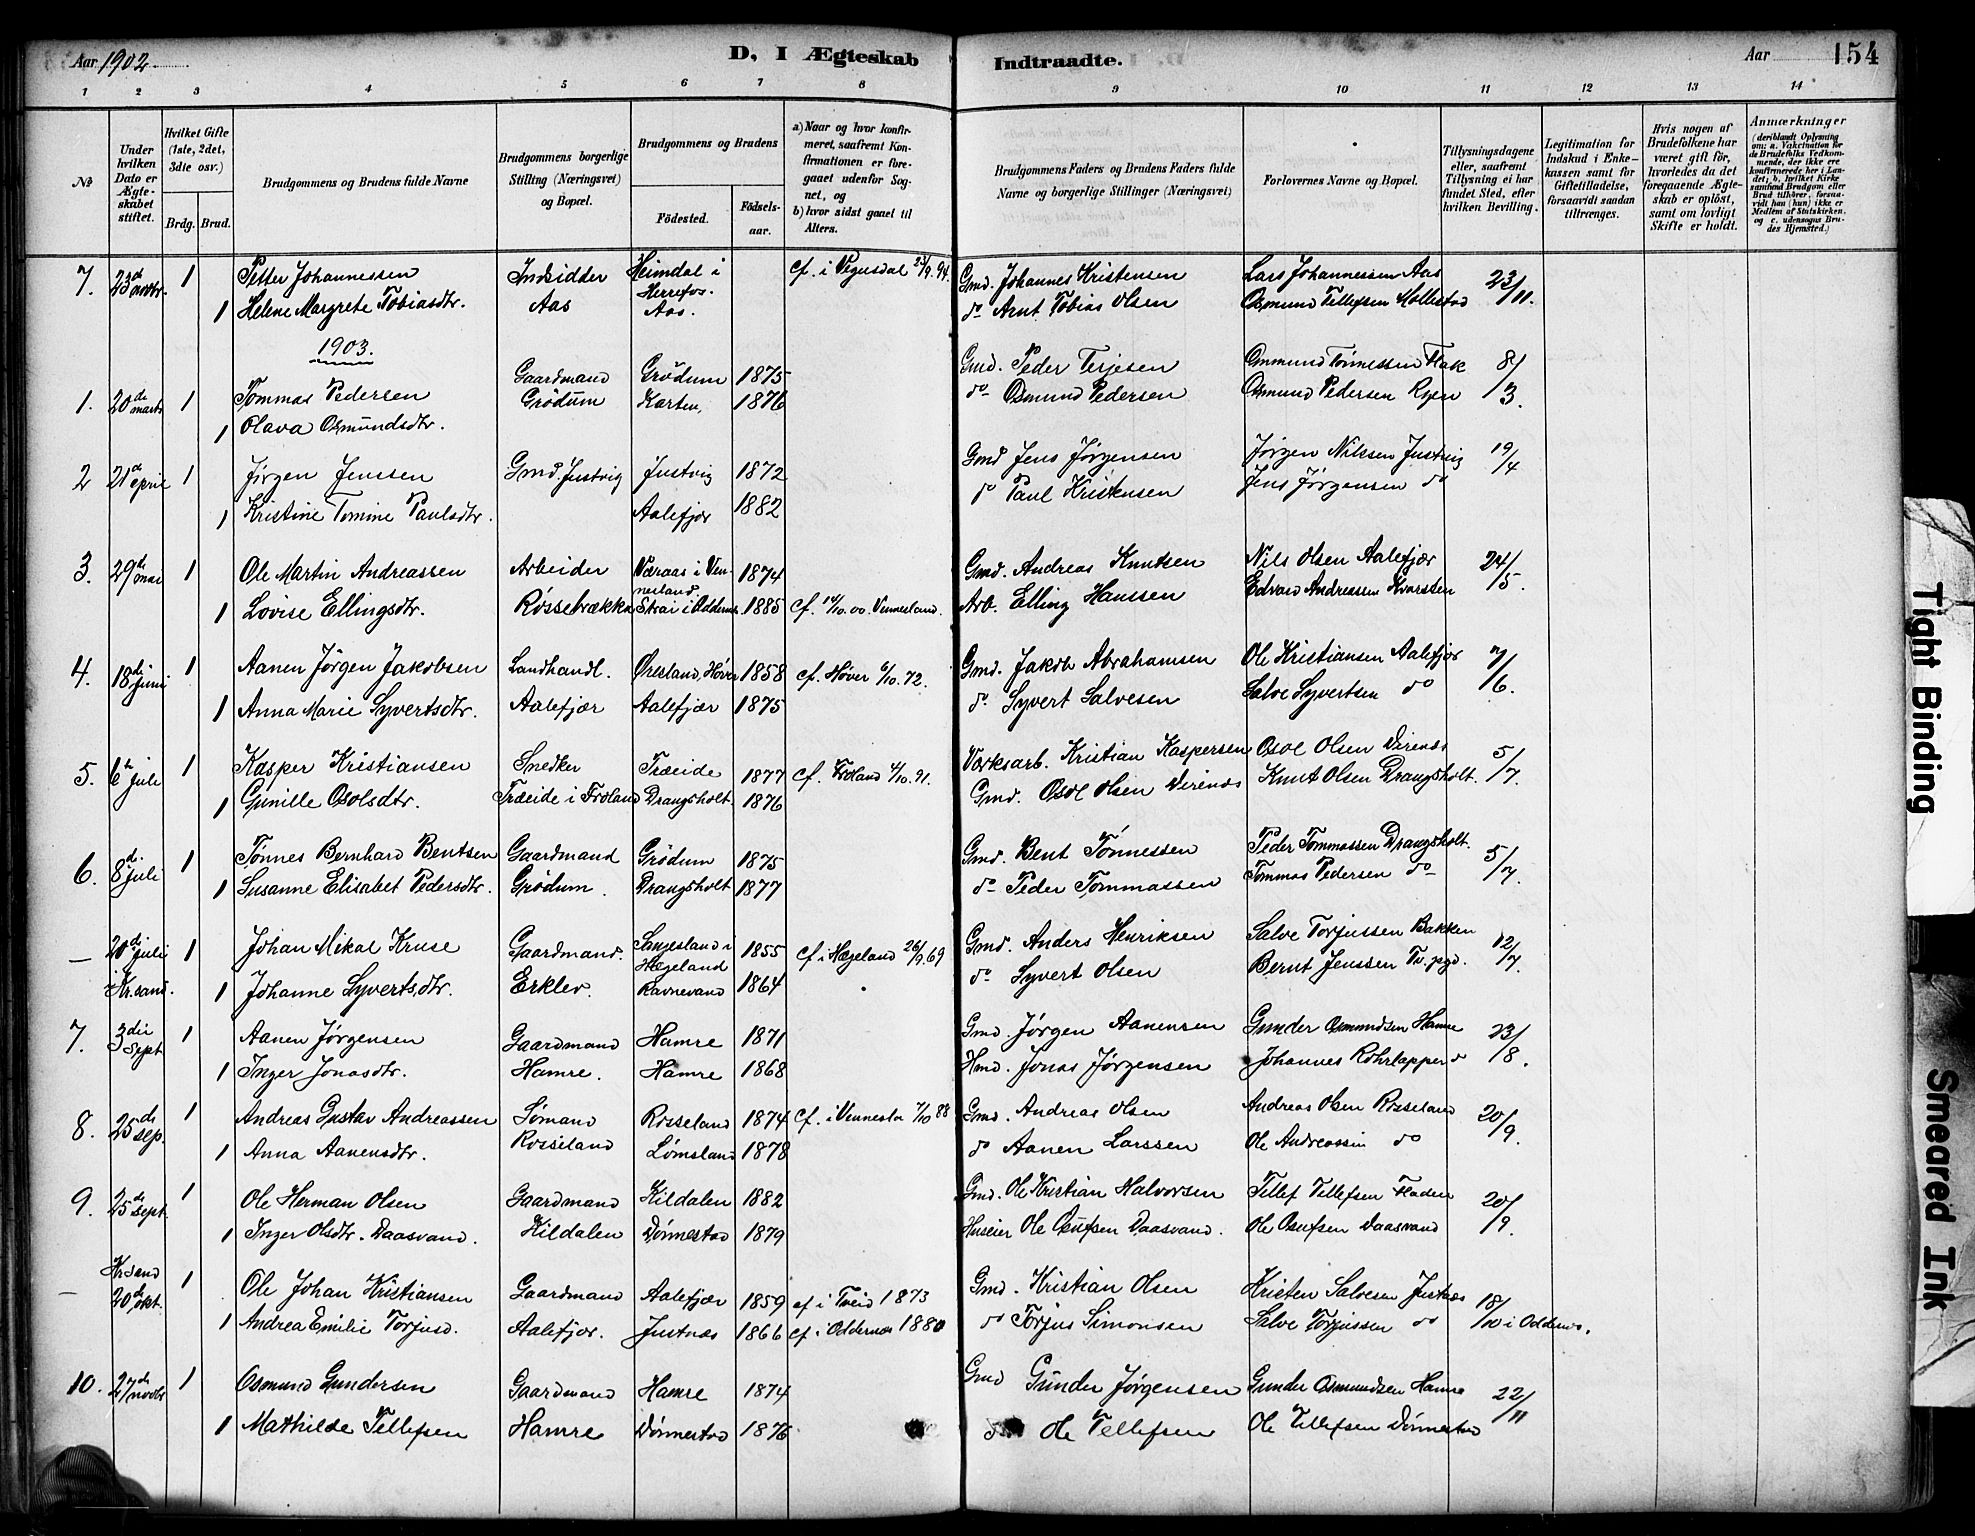 Aar 1902
D, I Ægteskab Indtraadte. Aar 154
1 2 3 4 5 6 7 8 9 10 11 12 13 14
№
Under hvilken Dato er Ægteskabet stiftet.
Hvilket Gifte (1ste, 2det, 3die osv.)
Brdg. Brud.
Brudgommens og Brudens fulde Navne
Brudgommens borgerlige Stilling (Næringsvei) og Bopæl.
Brudgommens og Brudens
Födested. Födselsaar.
a) Naar og hvor konfirmeret, saafremt Konfirmationen er foregaaet udenfor Sognet, og
b) hvor sidst gaaet til Alters.
Brudgommens Faders og Brudens Faders fulde Navne og borgerlige Stillinger (Næringsvei)
Forlovernes Navne og Bopæl.
Tillysningsdagene eller, saafremt Tillysning ei har fundet Sted, efter hvilken Bevilling.
Legitimation for Indskud i Enkekassen samt for Giftetilladelse, forsaavidt saadan tiltrænges.
Hvis nogen af Brudefolkene har været gift för, hvorledes da det foregaaende Ægteskab er oplöst, samt om lovligt Skifte er holdt.
Anmærkninger
(deriblandt Oplysning om: a. Vakcination for de Brudefolks Vedkommende, der ikke ere konfirmerede her i Landet; b. hvilket Kirkesamfund Brudgom eller Brud tilhörer, forsaavidt han (hun) ikke er Medlem af Statskirken, og c. udensogns Brudes Hjemsted.)
7. 23de novbr. 1 Petter Johannessen Indsidder Heimdal i Herrefos. cf. i Vegusdal 94. Gmd. Johannes Kristensen Lars Johannessen Aas 23/11.
1 Helene Margrete Tobiasdtr. Aas Aas. do Arnt Tobias Olsen Osmund Tellefsen Mollestad
1903.
1. 20de marts 1 Tommas Pedersen Gaardmand Grödum 1875 Gmd. Peder Terjesen Ommund Tønnessen Flak 8/3.
1 Olava Osmundsdtr. Grödum Karten, 1876 do Osmund Pedersen Osmund Pedersen Ryen
2 21de april 1 Jørgen Jenssen Gmd. Justvig Justvig 1872 Gmd Jens Jørgensen Jørgen Nilssen Justvig 19/4
1 Kristine Tomine Paulsdtr. Aalefjær 1882 do Paul Kristensen Jens Jørgensen do
3. 29de mai 1 Ole Martin Andreassen Arbeider Væraas i Vennesland. 1874 Gmd. Andreas Knutsen Nils Olsen Aalefjær 24/5.
1 Lovise Ellingsdtr. Røssebrækka Strai i Oddernes 1885 cf. 14/10.00. Vennesland. Arb. Elling Hanssen Edvard Andreassen Kvarsten
4. 18de juni 1 Aanen Jørgen Jakobsen Landhandl. Øresland, Høver 1858 cf. Høver 6/10.72. Gmd. Jakob Abrahamsen Ole Kristiansen Aalefjær 7/6.
1 Anna Marie Syvertsdtr. Aalefjær Aalefjær 1875 do. Syvert Salvesen Salve Syvertsen do
5. 6te juli 1 Kasper Kristiansen Snedker Træeide 1877 cf. Froland 4/10.91. Værksarb. Kristian Kaspersen Osol Olsen Verenæs 5/7.
1 Gunille Osolsdtr. Træeide i Froland Drangsholt. 1876 Gmd. Osol Olsen Verenæs Knut Olsen Drangsholt.
6. 8de. juli 1 Tønnes Bernhard Bentsen Gaardmand Grödum 1875 Gmd. Bent Tönnessen Peder Tommassen Drangsholt. 5/7.
1 Susanne Elisabet Pedersdtr. Grødum. Drangsholt 1877 do Peder Tommassen Tommas Pedersen do
— 20de juli i Kr.sand. 1 Johan Mikal Kruse Gaardmand. Sangesland i Hægeland 1855 cf. i Hægeland 26/9.69 Gmd. Anders Henriksen Salve Torjussen Bakken 12/7.
1 Johanne Syvertsdtr. Erklev. Ravnevand 1864 do Syvert Olsen Bernt Jenssen Tv. pgd.
7. 3die sept 1 Aanen Jørgensen Gaardmand Hamre 1871 Gmd. Jørgen Aanensen Gunder Osmundsen Hamre 23/8.
1 Inger Jonasdtr. Hamre. Hamre 1868 Hmd. Jonas Jørgensen Johannes Rohrlapper do
8. 25de sep. 1 Andreas Gustav Andreassen Sømand Rosseland 1874 cf. i Vennesla 7/10 88 Gmd. Andreas Olsen Andreas Olsen Rosseland 20/9.
1 Anna Aanensdtr. Rosseland Lømsland 1878 do Aanen Larssen Ole Andreassen do
9. 25de sept. 1 Ole Herman Olsen Gaardmand Kildalen 1882 Gmd. Ole Kristian Halvorsen Tellef Tellefsen Fladen 20/9.
1 Inger Olsdtr. Daasvand. Kildalen Dønnestad 1879 Huseier Ole Osufsen Daasvand. Ole Osufsen Daasvand
— Kr.sand 20de okt. 1 Ole Johan Kristiansen Gaardmand Aalefjær 1859 cf i Tveid 1873 Gmd. Kristian Olsen Kristen Salvesen Justnæs 18/10 i Oddernes.
1 Andrea Emilie Torjusd. Aalefjær. Justnæs 1866 cf. i Oddernes 1880 do Torjus Simonsen Salve Torjussen do
10. 27de novbr 1 Osmund Gundersen Gaardmand Hamre 1874 Gmd Günder Jørgensen Gunder Osmundsen Hamre 22/11
1 Mathilde Tellefsen Hamre Dønnestad 1876 do Ole Tellefsen Ole Tellefsen Dønnestad
Tight Binding
Smeared Ink